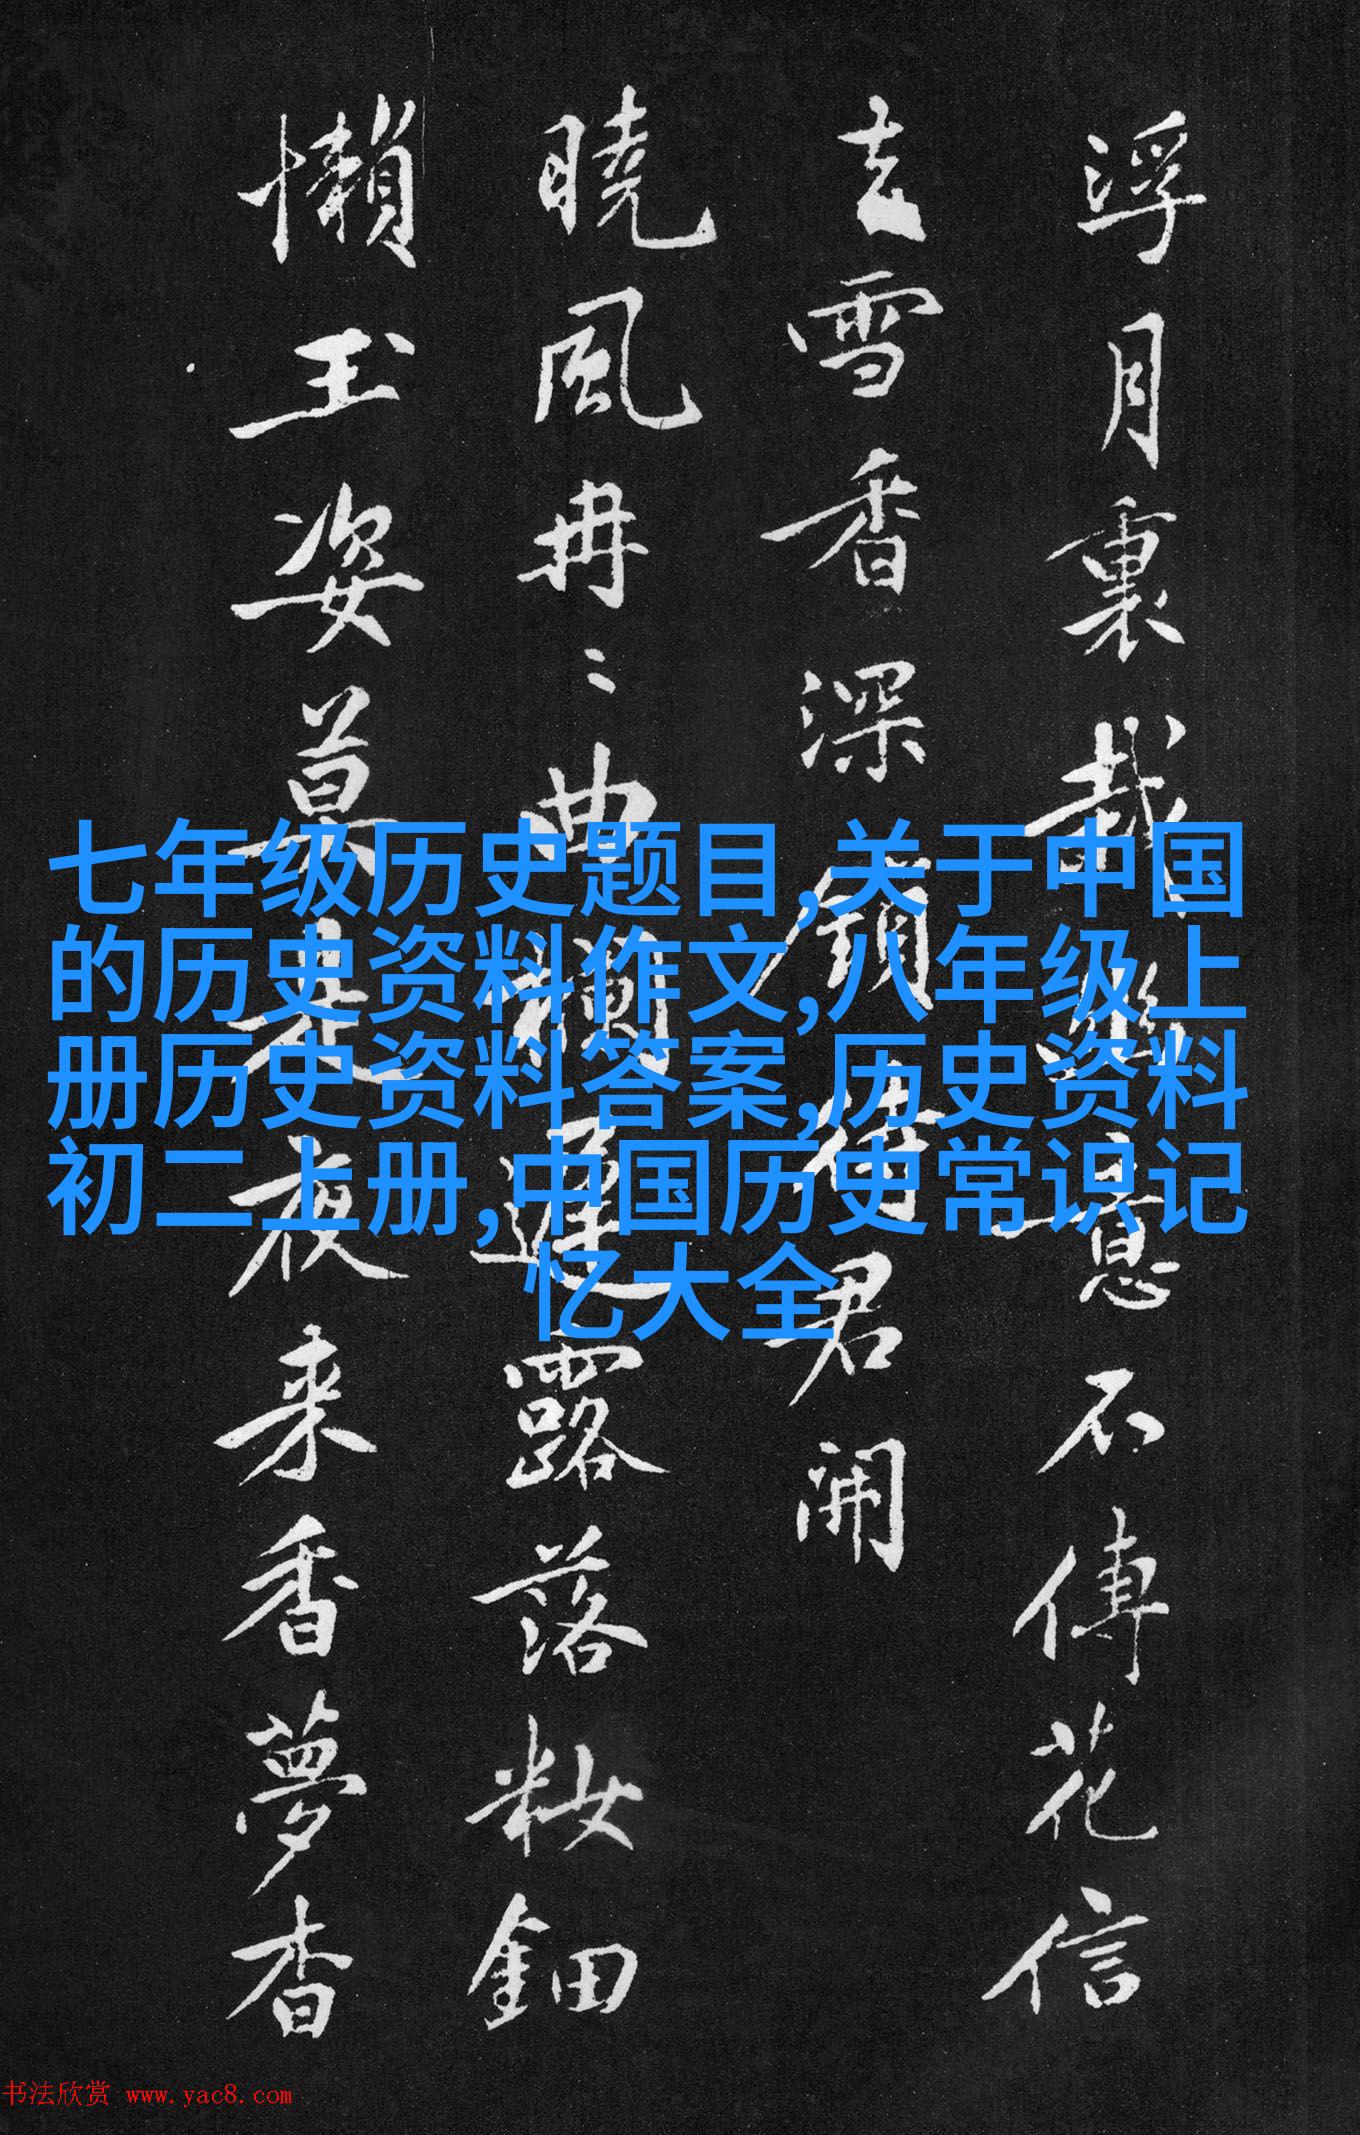 浮月裏栽
意不傳花信
玄雪香深鎖待君開
曉風冉〻曲欄遲露落妝鈿
懶玉姿莫
夜来香夢杳
七年级历史题目,关于中国
的历史资料作文,八年级上
册历史资料答案,历史资料
初二上册,中国历史常识记
忆大全
书法欣赏 www.yac8.com